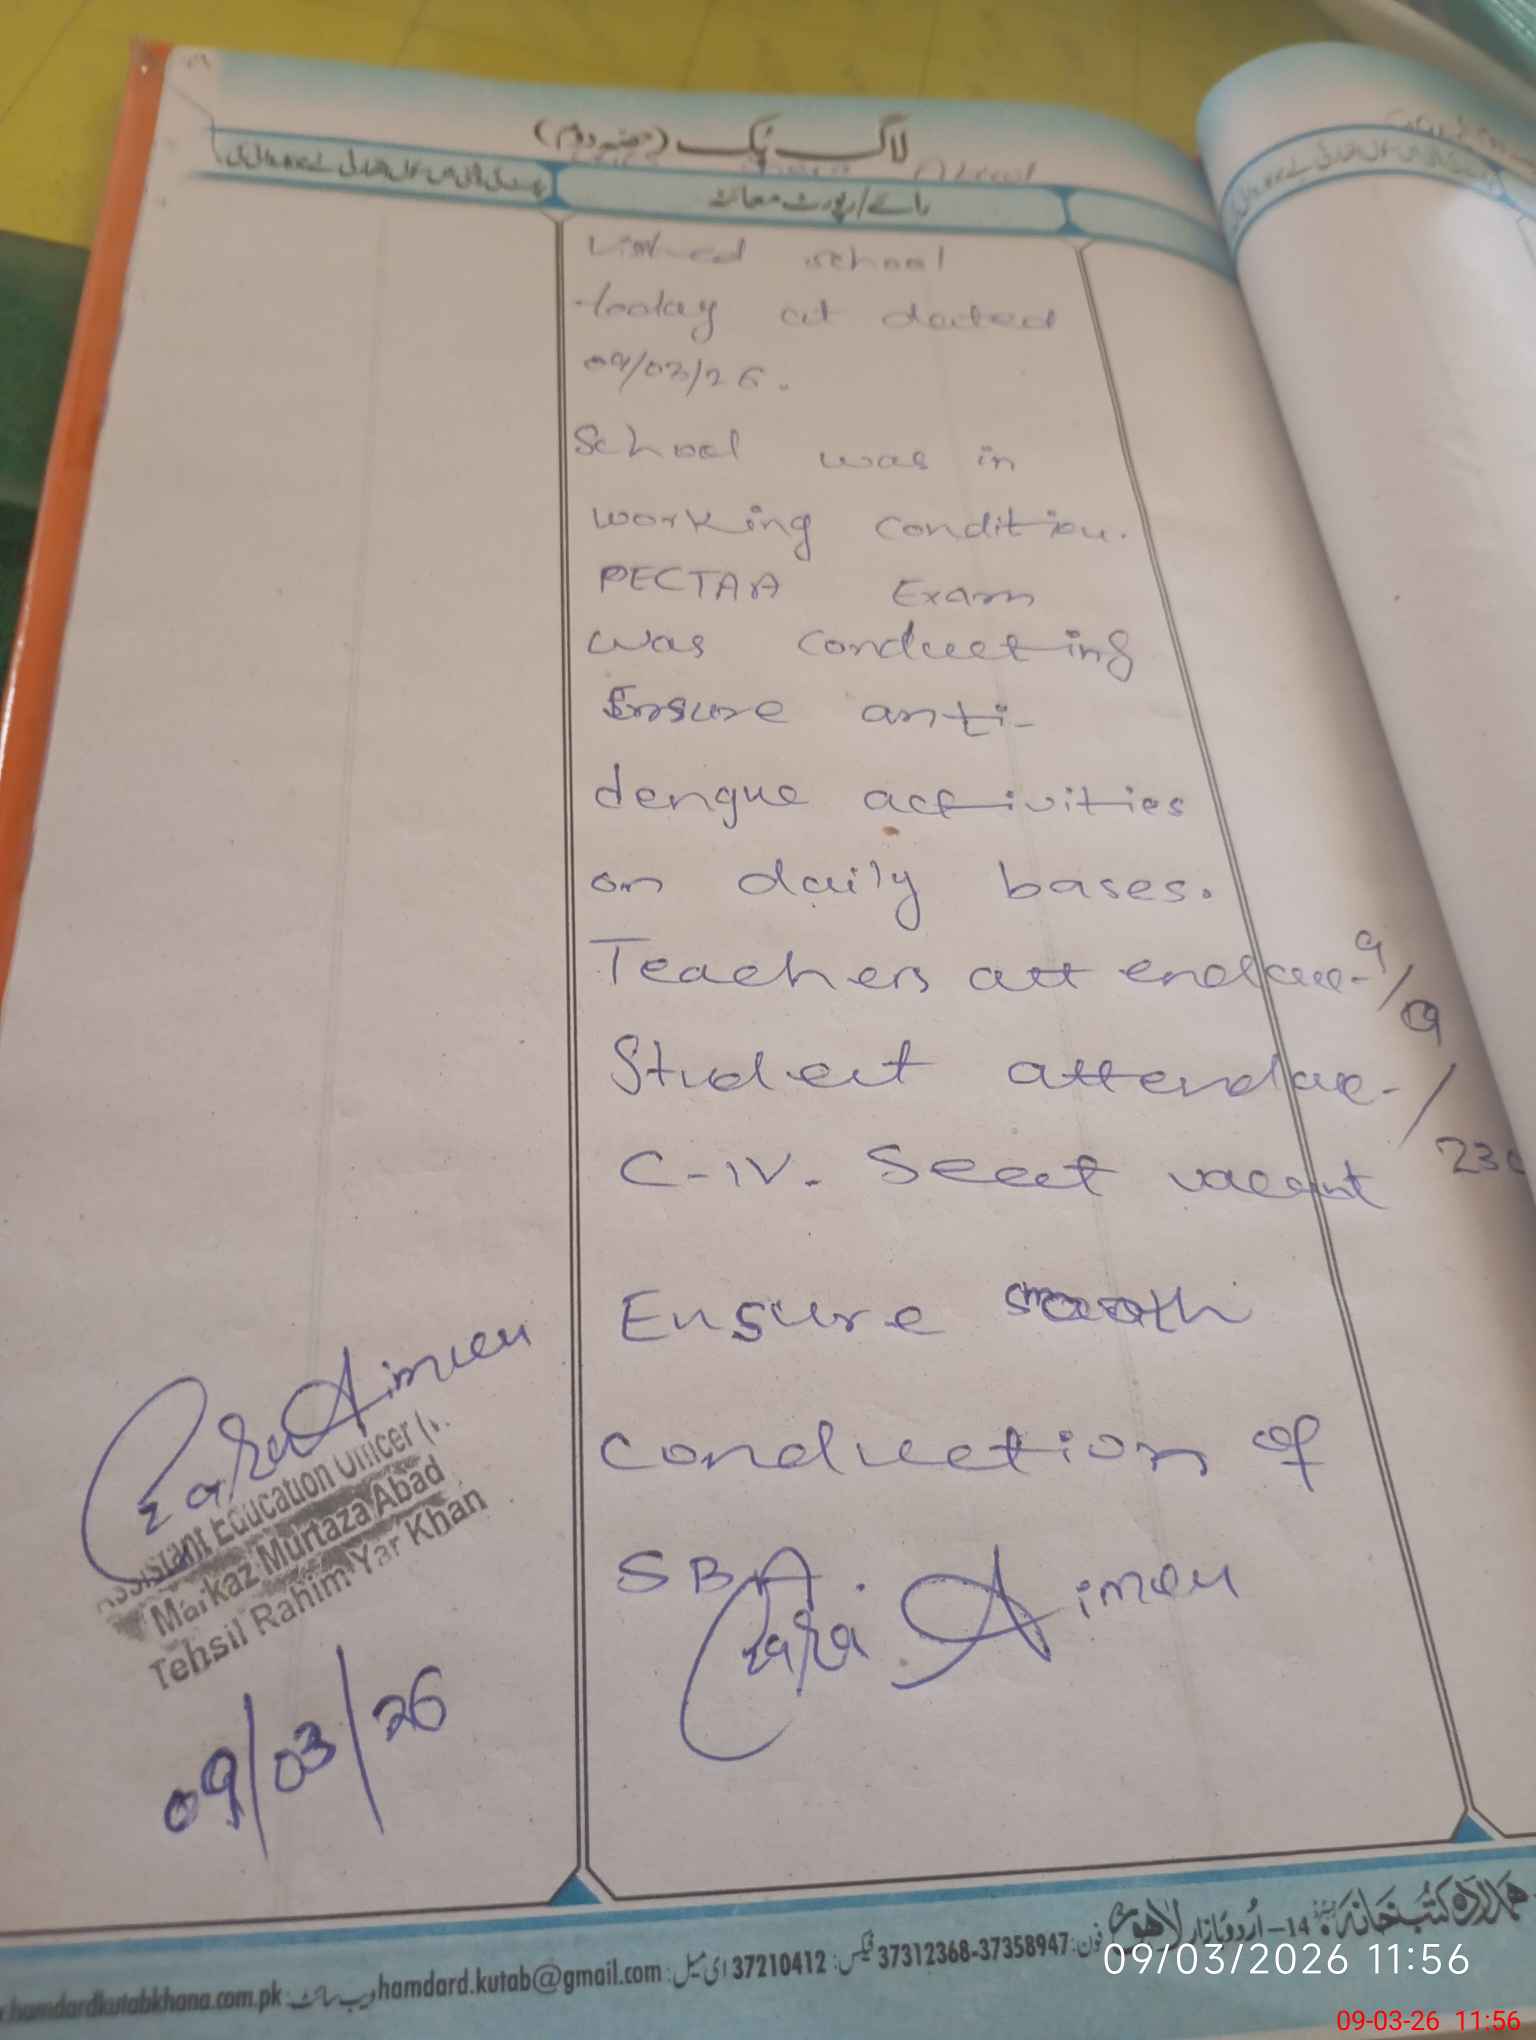 لاگ بک (حصہ دوم)
رائے/رپورٹ معائنہ
Visited school
today at dated
09/03/26.
School was in
working condition.
PECTAA Exam
was conducting
Ensure anti-
dengue activities
on daily bases.
Teachers attendace-9/9
Student attendace-/
23
C-IV. Seeat vacant
Ensure smooth
conduction of
SBA.
Zara Aimen
Zara Aimen
Assistant Education Officer
Markaz Murtaza Abad
Tehsil Rahim Yar Khan
09/03/26
ہمدرد کتب خانہ 14-اُردو بازار لاہور فون: 37312368-37358947 فیکس: 37210412 ای میل: hamdard.kutab@gmail.com ویب سائٹ: hamdardkutabkhana.com.pk
09/03/2026 11:56
09-03-26 11:56